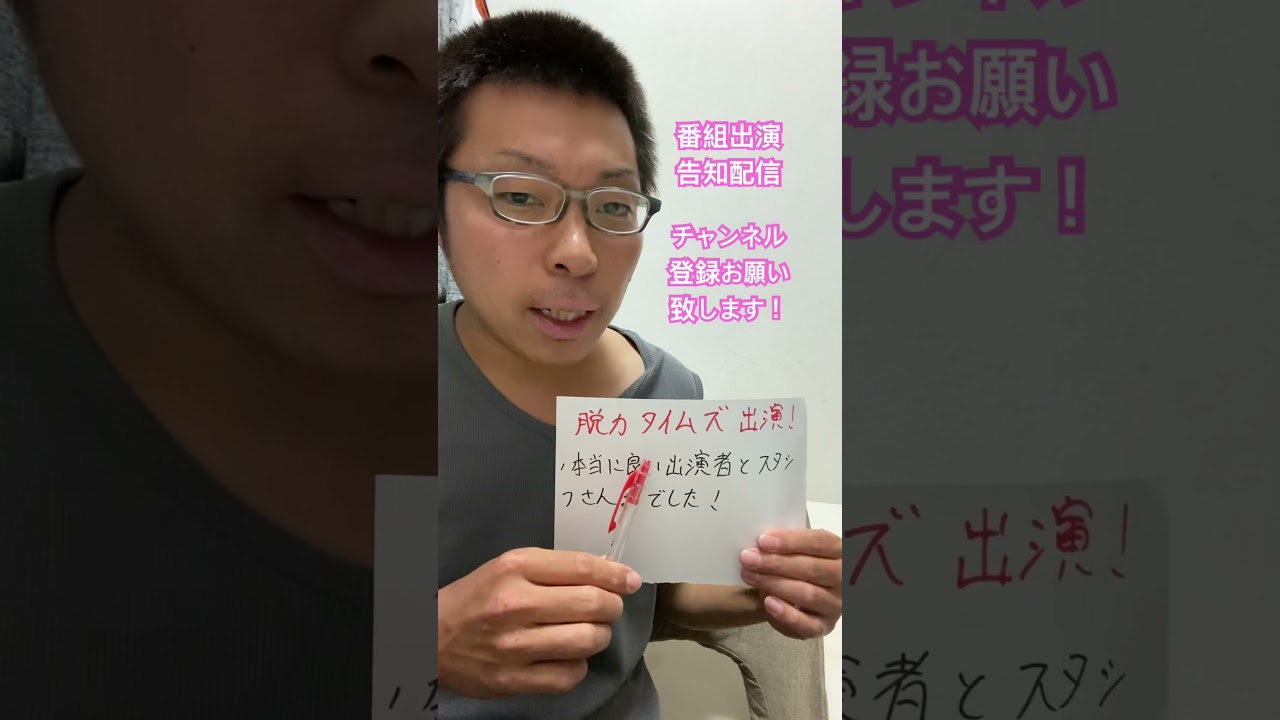 番組出演
告知配信
チャンネル
登録お願い
致します！
脱力タイムズ出演！
本当に良い出演者とスタッ
フさん でした！